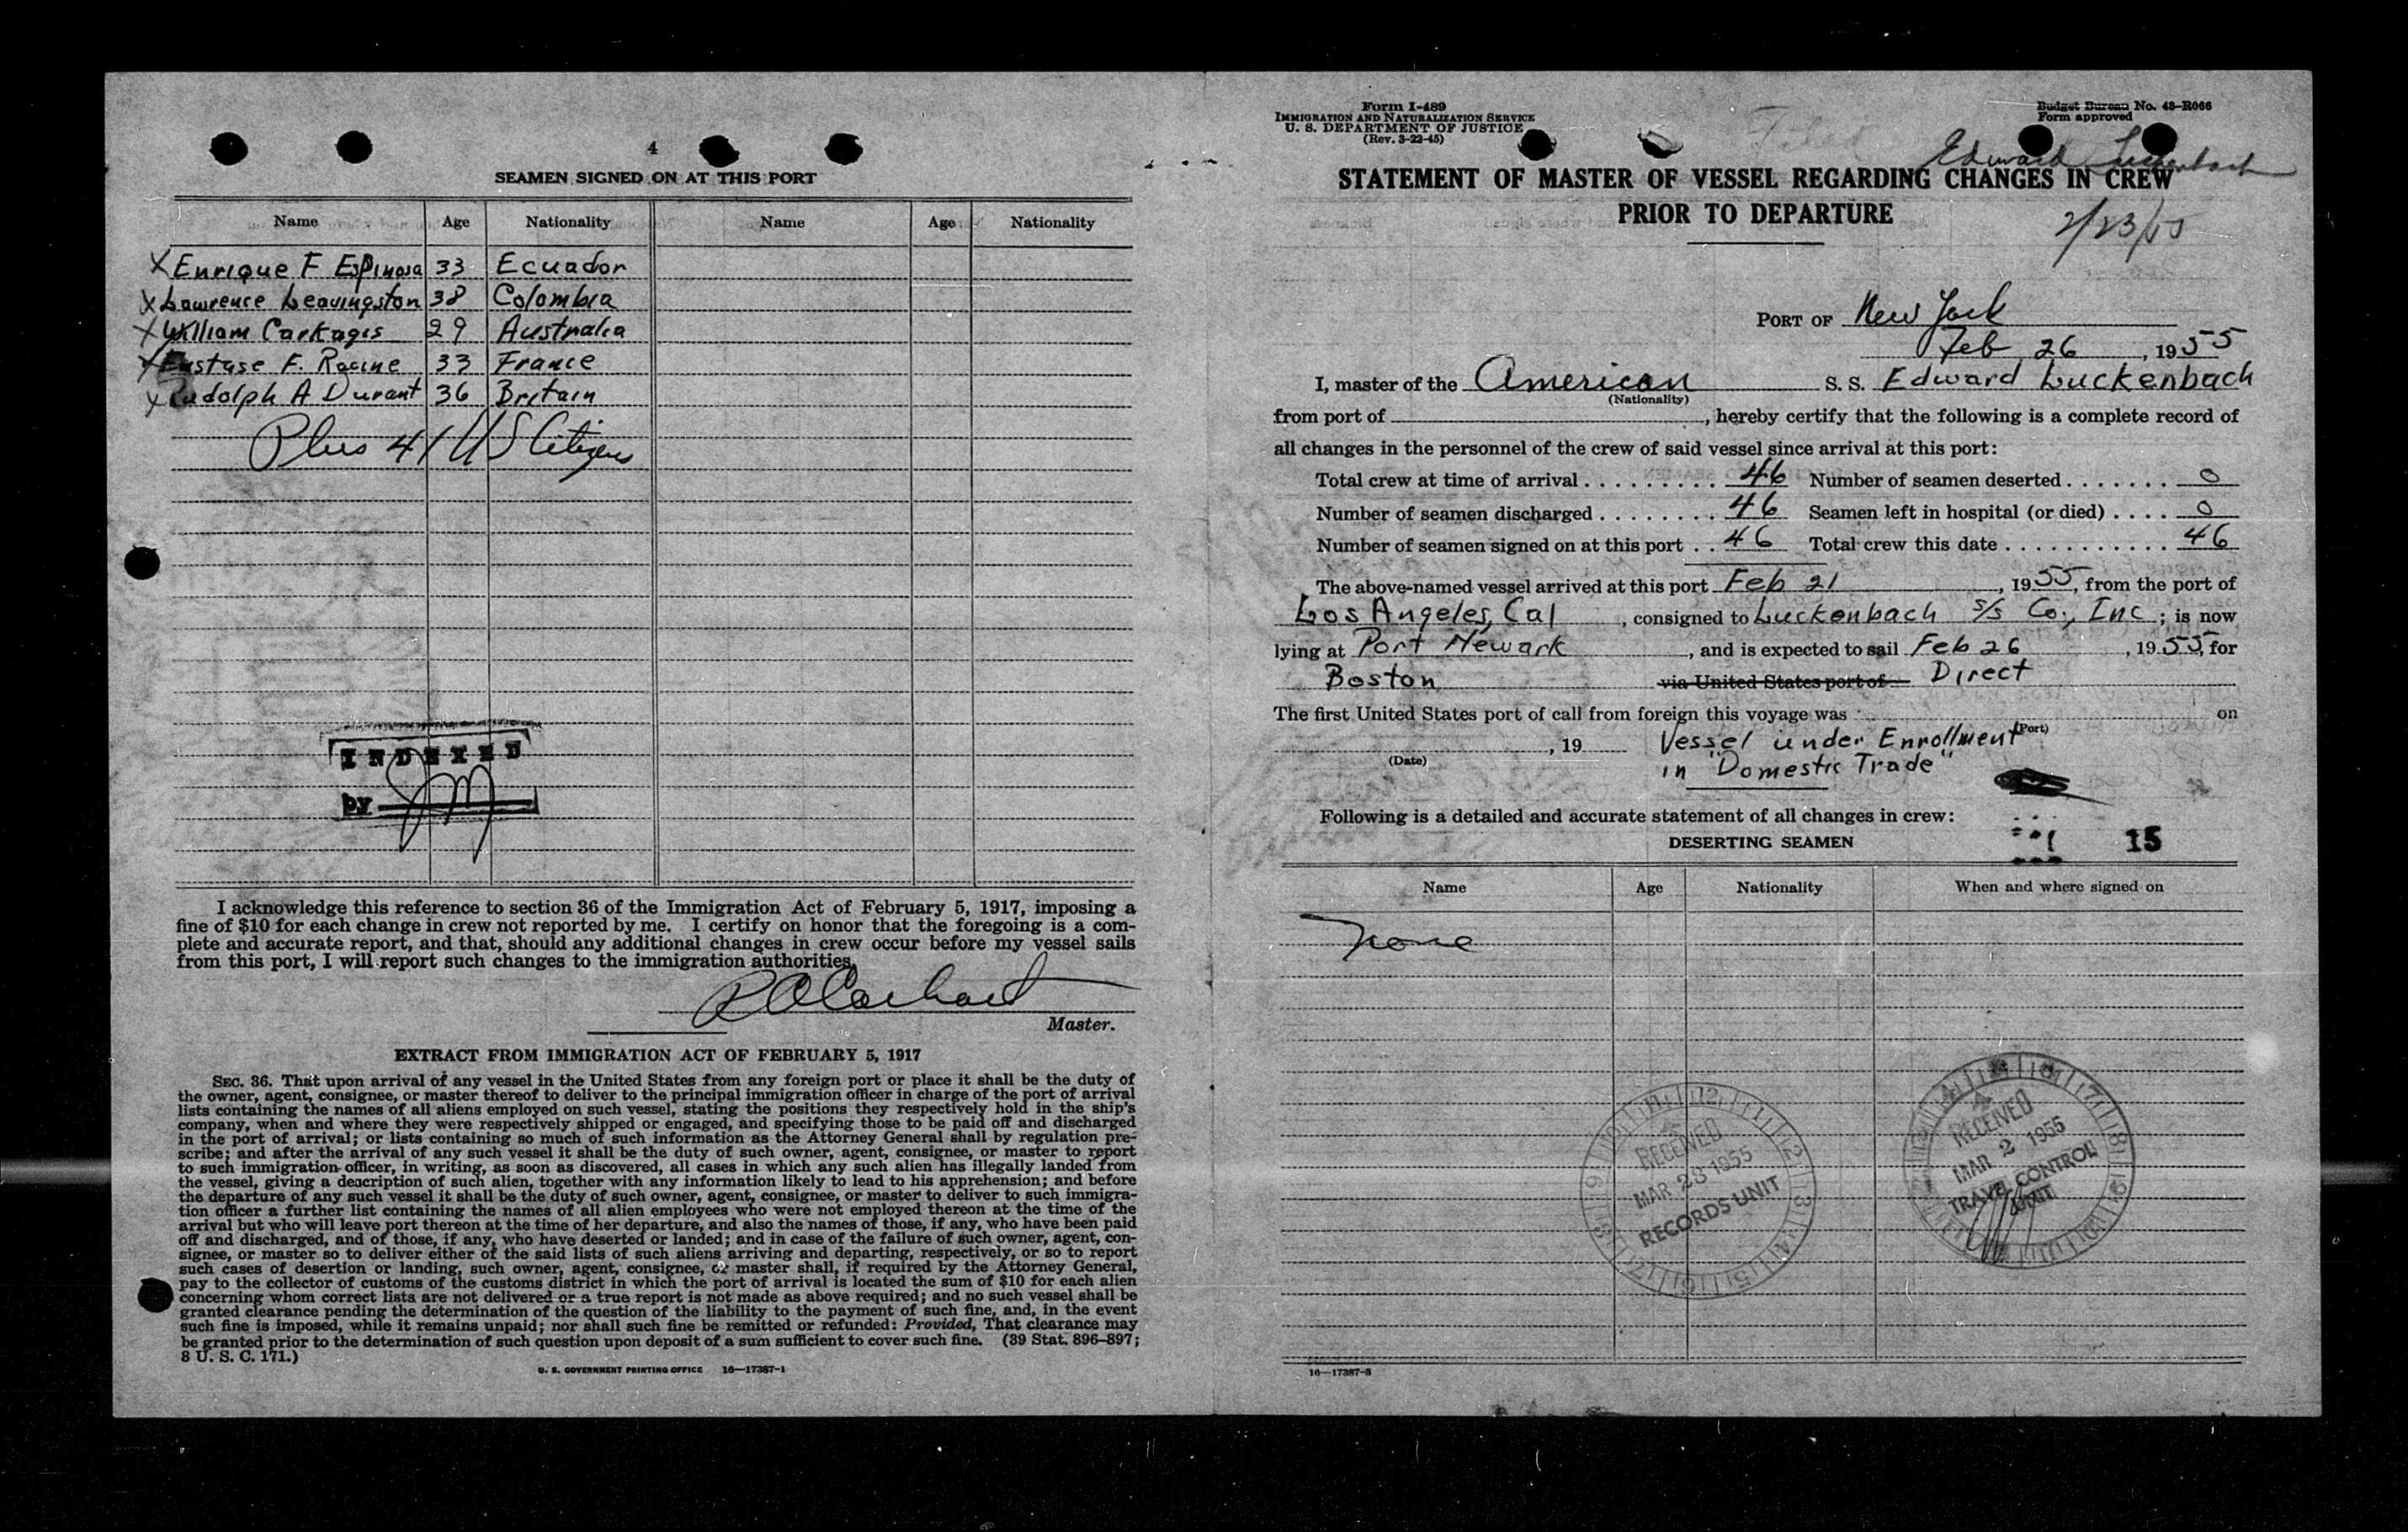 4
SEAMEN SIGNED ON AT THIS PORT
Name Age Nationality Name Age Nationality
X Enrique F Espinosa 33 Ecuador
X Lawrence Leavingston 38 Colombia
X William Carkagis 29 Australia
X Eustase F. Racine 33 France
X Rudolph A Durant 36 Britain
Plus 41 US Citizens
INDEXED
by JM
I acknowledge this reference to section 36 of the Immigration Act of February 5, 1917, imposing a
fine of $10 for each change in crew not reported by me. I certify on honor that the foregoing is a com-
plete and accurate report, and that, should any additional changes in crew occur before my vessel sails
from this port, I will report such changes to the immigration authorities.
Master.
EXTRACT FROM IMMIGRATION ACT OF FEBRUARY 5, 1917
SEC. 36. That upon arrival of any vessel in the United States from any foreign port or place it shall be the duty of
the owner, agent, consignee, or master thereof to deliver to the principal immigration officer in charge of the port of arrival
lists containing the names of all aliens employed on such vessel, stating the positions they respectively hold in the ship's
company, when and where they were respectively shipped or engaged, and specifying those to be paid off and discharged
in the port of arrival; or lists containing so much of such information as the Attorney General shall by regulation pre-
scribe; and after the arrival of any such vessel it shall be the duty of such owner, agent, consignee, or master to report
to such immigration officer, in writing, as soon as discovered, all cases in which any such alien has illegally landed from
the vessel, giving a description of such alien, together with any information likely to lead to his apprehension; and before
the departure of any such vessel it shall be the duty of such owner, agent, consignee, or master to deliver to such immigra-
tion officer a further list containing the names of all alien employees who were not employed thereon at the time of the
arrival but who will leave port thereon at the time of her departure, and also the names of those, if any, who have been paid
off and discharged, and of those, if any, who have deserted or landed; and in case of the failure of such owner, agent, con-
signee, or master so to deliver either of the said lists of such aliens arriving and departing, respectively, or so to report
such cases of desertion or landing, such owner, agent, consignee, or master shall, if required by the Attorney General,
pay to the collector of customs of the customs district in which the port of arrival is located the sum of $10 for each alien
concerning whom correct lists are not delivered or a true report is not made as above required; and no such vessel shall be
granted clearance pending the determination of the question of the liability to the payment of such fine, and, in the event
such fine is imposed, while it remains unpaid; nor shall such fine be remitted or refunded: Provided, That clearance may
be granted prior to the determination of such question upon deposit of a sum sufficient to cover such fine. (39 Stat. 896–897;
8 U. S. C. 171.)
U. S. GOVERNMENT PRINTING OFFICE 16—17387-1
Form I-489
IMMIGRATION AND NATURALIZATION SERVICE
U. S. DEPARTMENT OF JUSTICE
(Rev. 3-22-45)
Budget Bureau No. 43–R066
Form approved
Edward Luckenbach
STATEMENT OF MASTER OF VESSEL REGARDING CHANGES IN CREW
PRIOR TO DEPARTURE
2/23/55
PORT OF New York
Feb 26, 1955
I, master of the American S. S. Edward Luckenbach
(Nationality)
from port of , hereby certify that the following is a complete record of
all changes in the personnel of the crew of said vessel since arrival at this port:
Total crew at time of arrival 46 Number of seamen deserted 0
Number of seamen discharged 46 Seamen left in hospital (or died) 0
Number of seamen signed on at this port 46 Total crew this date 46
The above-named vessel arrived at this port Feb 21, 1955, from the port of
Los Angeles, Cal, consigned to Luckenbach S/S Co., Inc; is now
lying at Port Newark, and is expected to sail Feb 26, 1955, for
Boston via United States port of Direct
The first United States port of call from foreign this voyage was on
(Port)
, 19 Vessel under Enrollment
(Date)
in "Domestic Trade"
Following is a detailed and accurate statement of all changes in crew:
DESERTING SEAMEN
15
Name Age Nationality When and where signed on
none
RECEIVED
MAR 23 1955
RECORDS UNIT
RECEIVED
MAR 2 1955
TRAVEL CONTROL
UNIT
16—17387-3